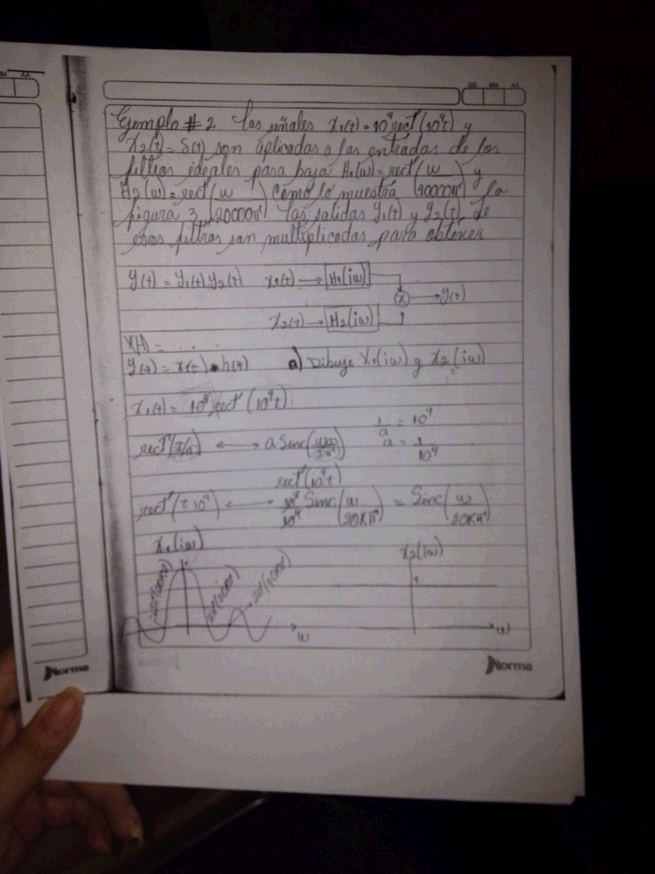 DD MM AA
Ejemplo # 2 Las señales x₁(t) = 10⁴ rect (10⁴t) y
x₂(t) = δ(t) son aplicadas a las entradas de los
filtros ideales pasa baja H₁(w) = rect (w/40000π) y
H₂(w) = rect (w/20000π) como lo muestra la
figura 3, las salidas y₁(t) y y₂(t) de
esos filtros son multiplicadas para obtener
y(t) = y₁(t) y₂(t) x₁(t) → H₁(iw)
(x) → y(t)
x₂(t) → H₂(iw)
y(t) = x(t) * h(t) a) Dibuje X₁(iw) y X₂(iw)
x₁(t) = 10⁴ rect (10⁴t)
1/a = 10⁴
rect (t/a) ↔ a Sinc(wa/2π) a = 1/10⁴
rect (10⁴t)
rect (t 10⁴) ↔ 10⁴/10⁴ Sinc(w/20Kπ) = Sinc(w/20Kπ)
X₁(iw) X₂(iw)
1
w w
Norma Norma